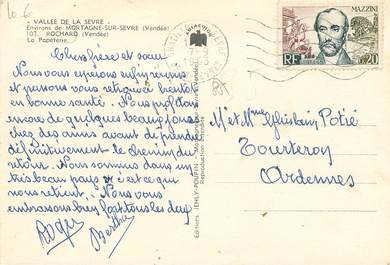 10.6
- VALLEE DE LA SEVRE -
Environs de MORTAGNE-SUR-SEVRE (Vendée)
107. ROCHARD (Vendée)
La Papeterie.
Chers frère et sœur
Nous vous espérons enfin remis
et pensons vous retrouver bientôt
en bonne santé. Nous profitons
encore de quelques beaux jours
chez des amis avant de prendre
définitivement le chemin du
retour. Nous sommes dans un
très beau pays et c'est ce qui
nous retient. Nous vous
embrassons bien fort tous les deux
Roger
Berthe
Editions JEHLY-POUPIN
Reproduction interdite
MAZZINI
RF
0,20
M et Mme Ghislain Potié
Tourteron
Ardennes